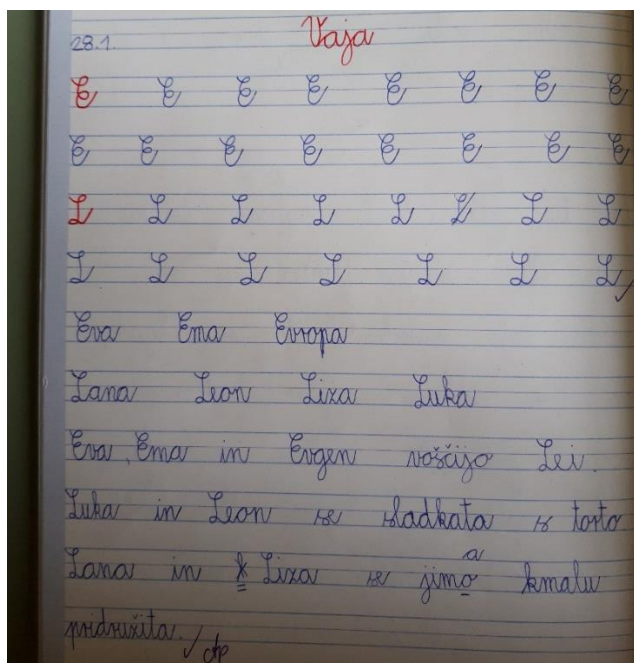 28.1. Vaja
E E E E E E E E
E E E E E E E E
L L L L L L L L
L L L L L L L
Eva Ema Evropa
Lana Leon Liza Luka
Eva, Ema in Evgen voščijo Lei.
Luka in Leon se sladkata s torto
a
Lana in Liza se jimo kmalu
pridružita.